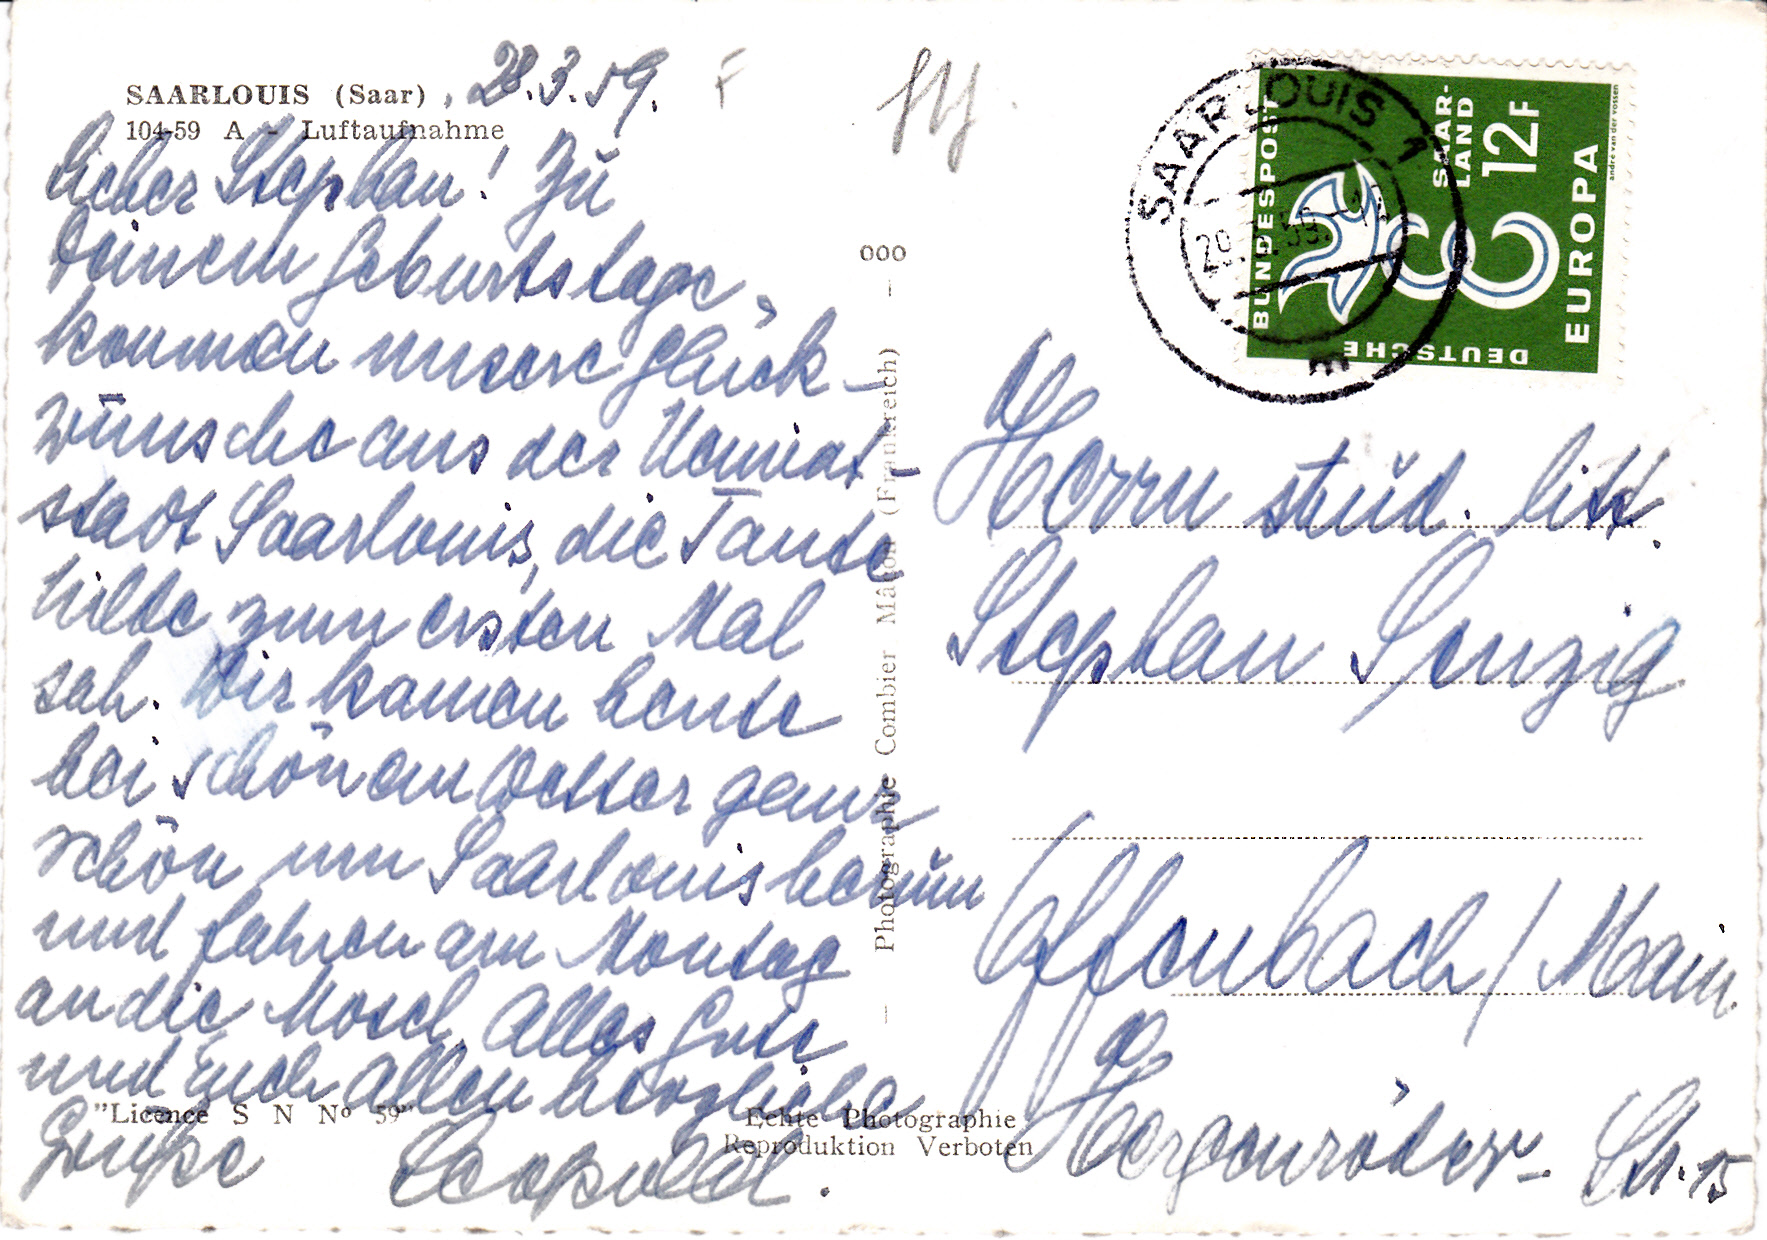 SAARLOUIS (Saar), 28.3.59.
104-59 A - Luftaufnahme
Lieber Stephan! Zu
Deinem Geburtstage
kommen unsere Glück-
wünsche aus der Heimat-
stadt Saarlouis, die Tante
Hilde zum ersten Mal
sah. Wir kamen heute
bei schönem Wetter ganz
schön um Saarlouis herum
und fahren am Montag
an die Mosel. Alles Gute
und Euch allen herzliche
Grüße Leopold.
"Licence S N Nº 59"
Echte Photographie
Reproduktion Verboten
000
— Photographie Combier Mâcon (Frankreich) —
F
SAARLOUIS 1
m
DEUTSCHE
BUNDESPOST
SAAR-
LAND
12F
EUROPA
andré van der vossen
Herrn stud. litt.
Stephan Senzig
Offenbach/Main.
Hergenröder-Str. 15